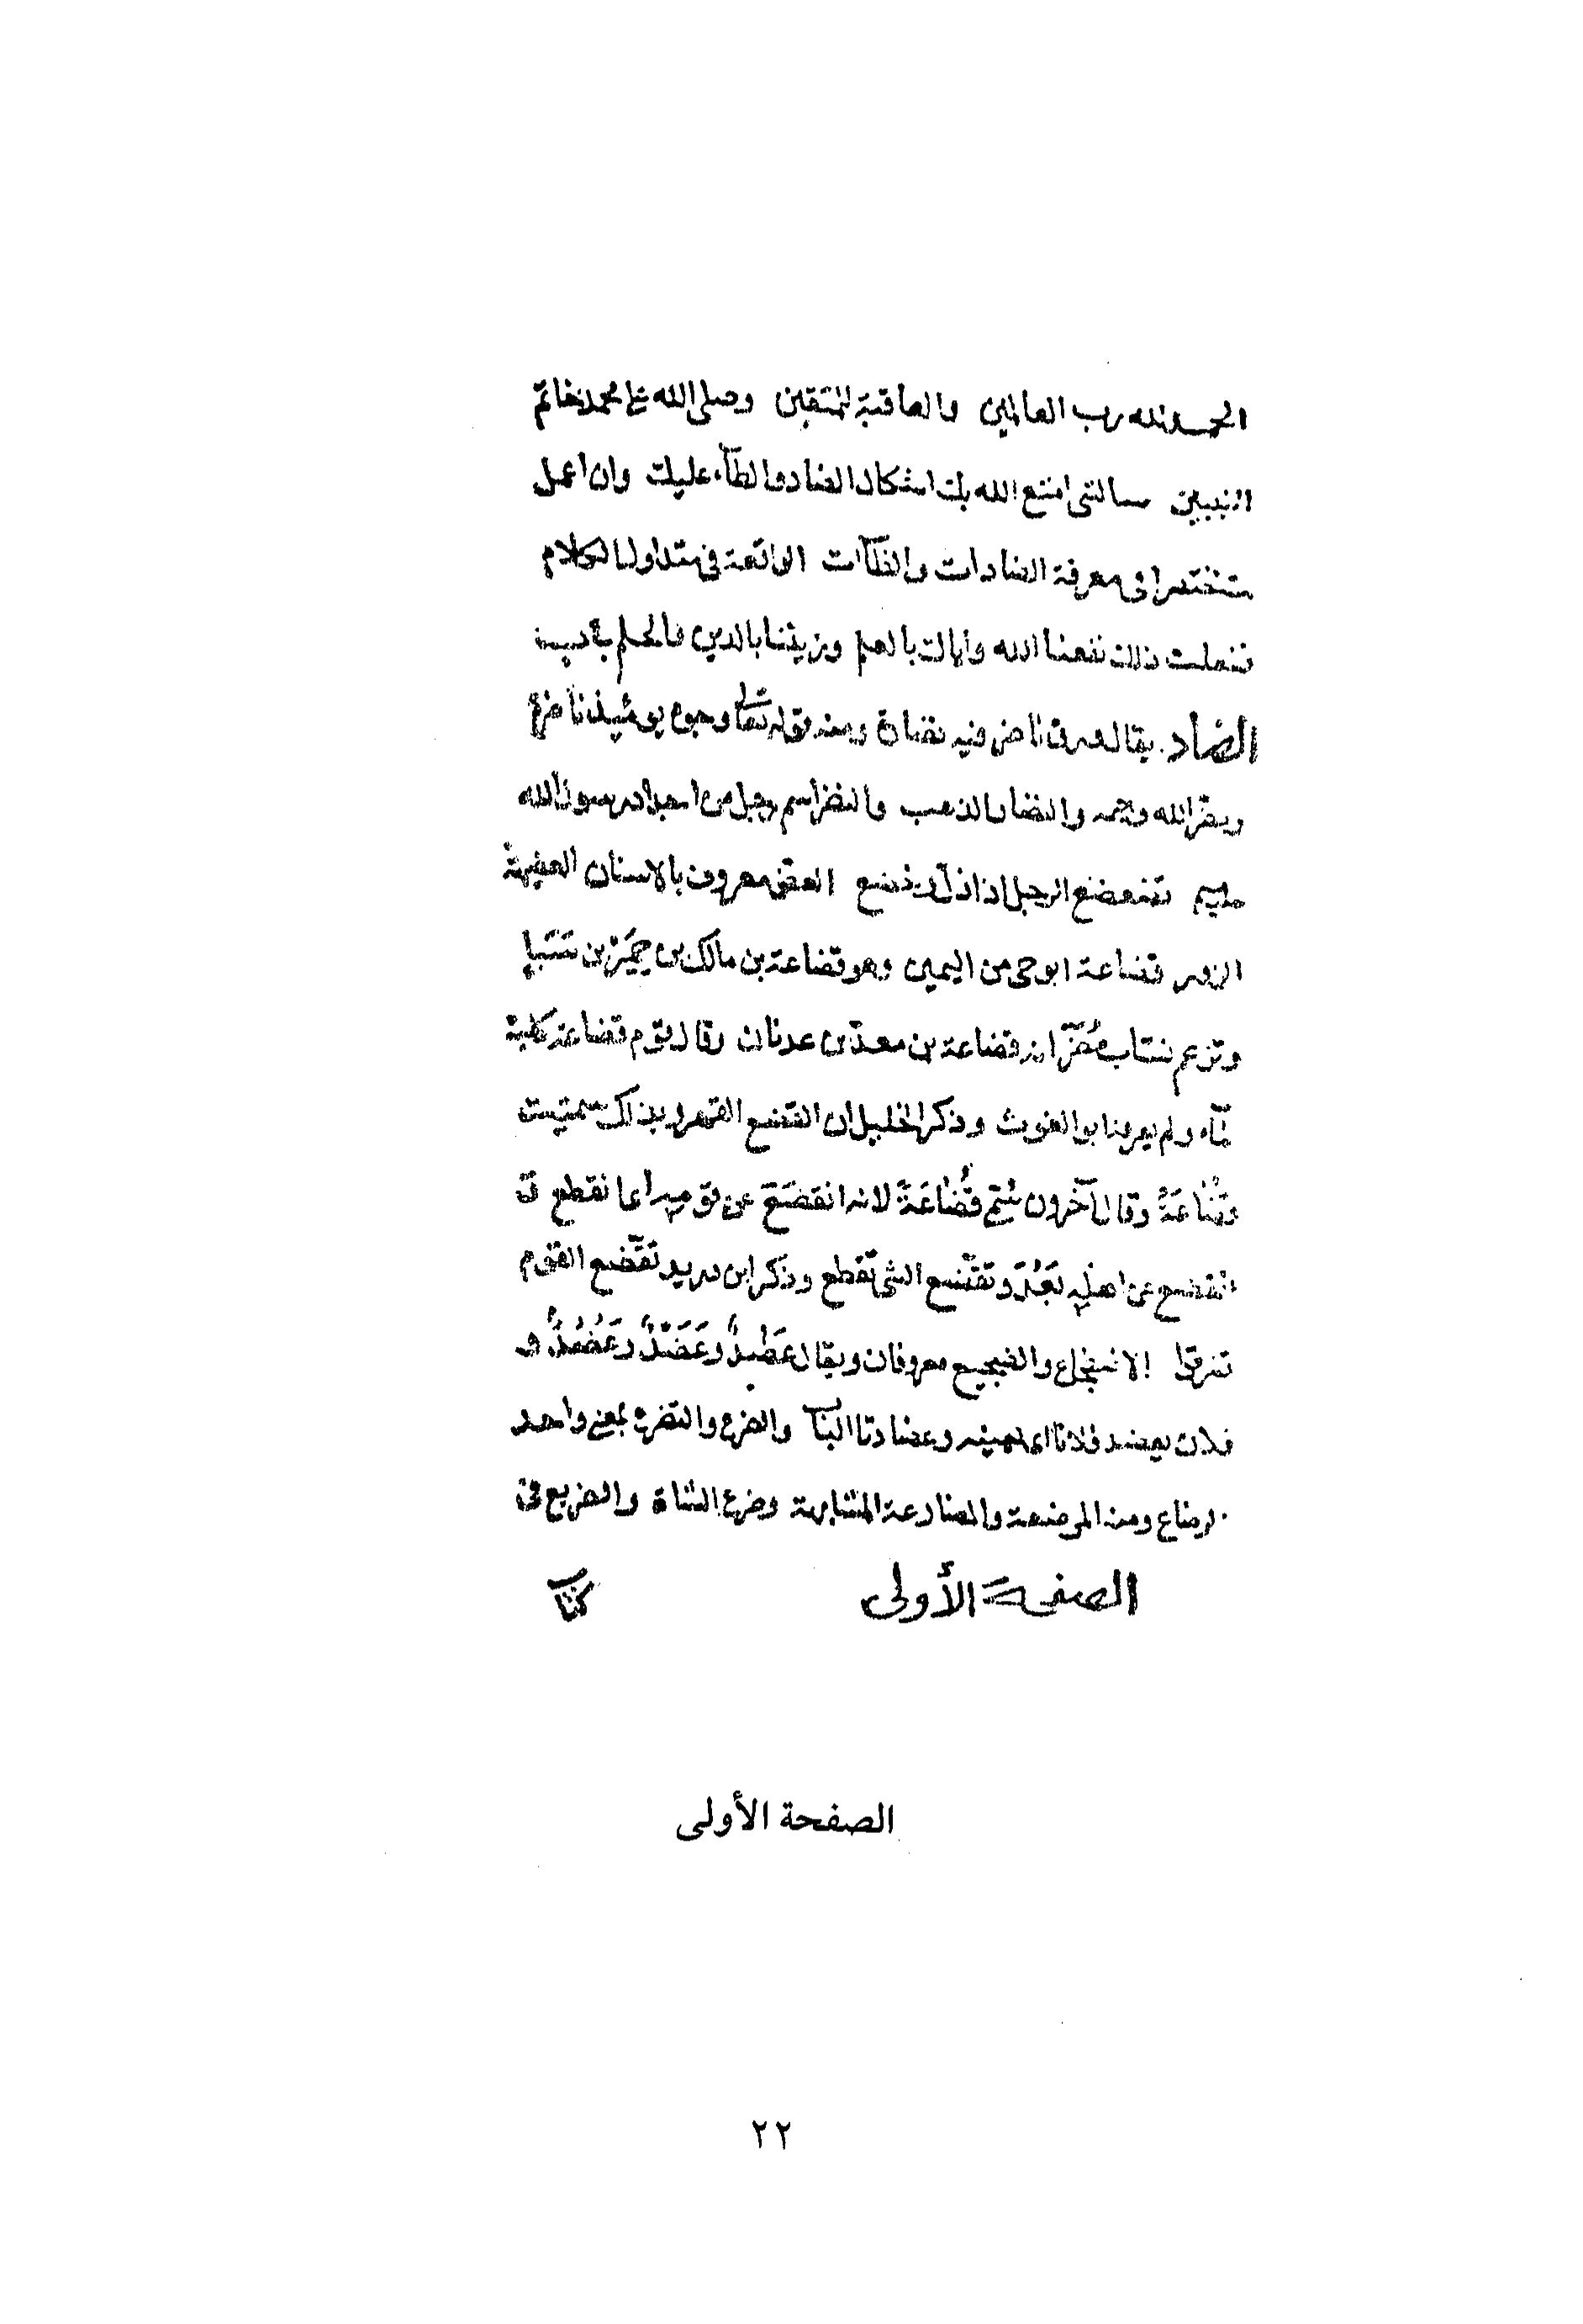 الحمد لله رب العالمين والعاقبة للمتقين وصلى الله على محمد خاتم
النبيين سالتنى امتع الله بك اشكال الضاد والظآء عليك وان اعمل
مختصرا فى معرفة الضادات والظآات الواقعة فى متداول الكلام
ففعلت ذلك نفعنا الله واياك بالعلم وزيننا بالدين والحلم
الضاد يقال ورق ناضر فيه نضارة ومنه قوله تعالى وجوه يومئيذ ناضرة
ونضر الله وجهه والنضار الذهب والنضر اسم رجل من اجداد رسول الله
تضعضع الرجل اذا ذل العض معروف بالاسنان العضيهة
الزور قضاعة ابو حى من اليمن وهو قضاعة بن مالك بن حِمْيَر بن سَبَا
وتزعم نساب مُضَر انه قضاعة بن معدّ بن عدنان وقال قوم قضاعة كلبة
مآء ولم يعرفنا ابو الغوث وذكر الخليل ان القضع القهر وبذلك سميت
قُضَاعَةُ وقال آخرون سُمّى قُضَاعَةً لانه انقضَعَ عن قومه اى انقطع ق
انقضع عن اهله بَعُدَ وتقضّع الشى تقطع وذكر ابن دريد تقضّع القوم
تفرقوا الاضطجاع والضجيع معروفان ويقال عَضْدٌ وعَضَدٌ وعَضُدٌ و
فلان يعضد فلانا اى يعينه وعضادتا الباب والضرع والتضرع بمعنى واحد
الرضاع ومنه المرضعة والمضارعة المشابهة وضرع الشاة والضريع فى
الصفحة الأولى كتاب
الصفحة الأولى
٢٢